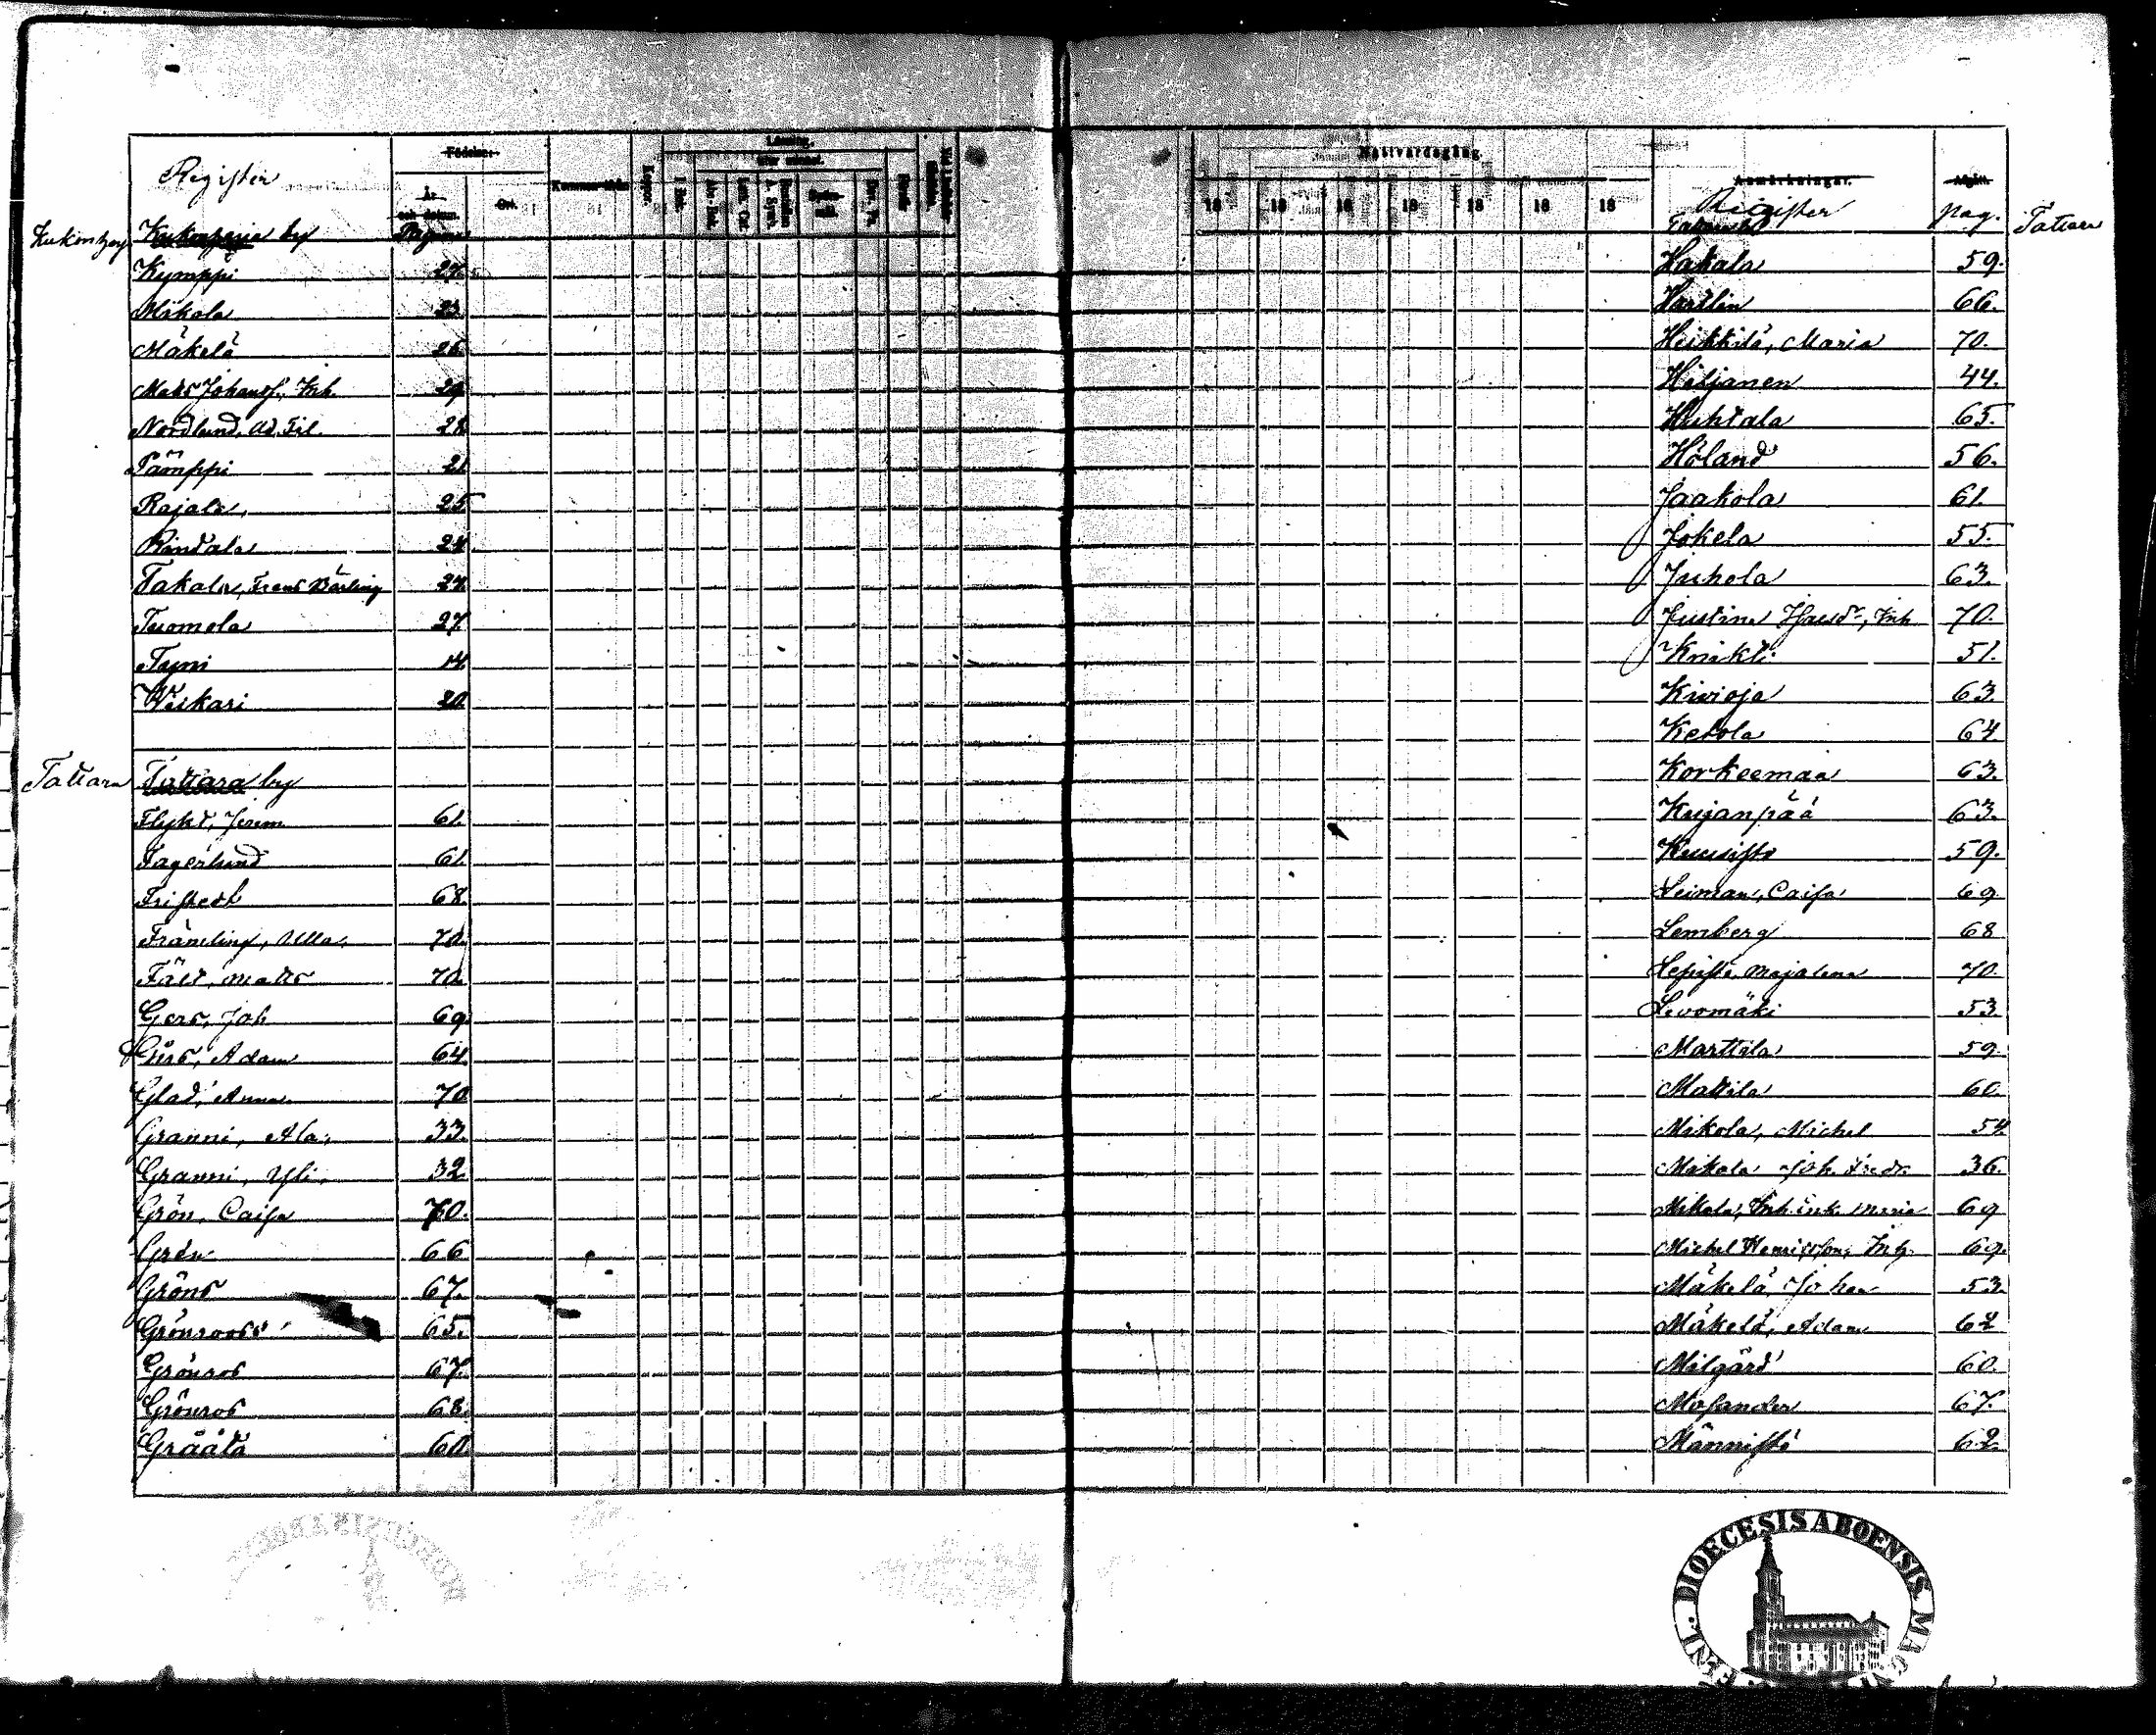 Register
Födelse-
År
och datum.
Ort.
Läsning.
Pagina
Kukonharj Kukonharja by
Kymppi 27.
Mikola 23
Mäkelä 26
Mats Johansf., Inh. 29
Nordlund, Ad. Fil. 28
Pämppi 21
Rajala 25
Rindala 24
Takala, Frans Bärling 24
Tuomola 27
Tyni 14
Wiskari 20
Tattara Tattara by
Flykt, Jerem. 61.
Fagerlund 61
Fristedt 68
Främling, Ulla, 70.
Fält, Matts 70
Gers, Joh 69
Girs, Adam 64
Glad, Anna 70
Granni, Ala, 33
Granni, Yli, 32
Grön, Caisa 70.
Grén 66
Gröns 67.
Grönroos 65.
Grönros 67.
Grönros 68.
Gräätä 60
Nattvardsgång.
18 18 18 18 18 18 18
Anmärkningar.
Register pag. Tattara
Hakala 59.
Hartlin 66.
Heikkilä, Maria 70.
Hiljanen 44.
Huhtala 65.
Höland 56.
Jaakola 61.
Jokela 55.
Juhola 63.
Justina Isacsdr, Inh 70.
Knihti 51.
Kivioja 63.
Ketola 64
Korkeemaa 63.
Kujanpää 63.
Kuusisto 59.
Leiman, Caisa 69
Lemberg 68
Lepistö Majalena 70.
Levomäki 53
Marttila 59.
Mattila 60.
Mikola, Michel 54
Mikola Joh. Fredr. 36.
Mikola, Inh. enk. Maria 69
Michel Henriksson, Inh. 69.
Mäkelä, Johan 53.
Mäkelä, Adam 62
Milgård 60.
Mosander 67.
Männistö 62.
DIOECESIS ABOENSIS MAG